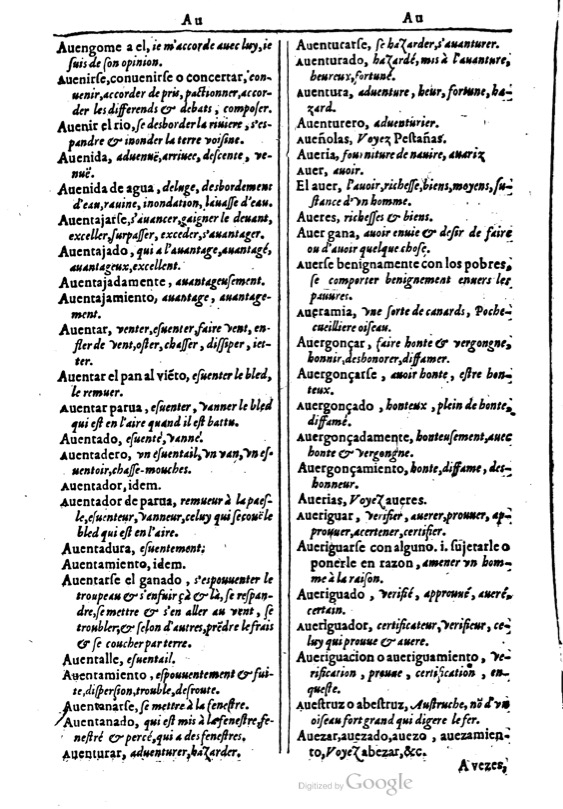 Au
Au
Auengome a el, ie m'accorde auec luy, ie
suis de son opinion.
Auenirse, conuenirse o concertar, con-
uenir, accorder de pris, pactionner, accor-
der les differends & debats, composer.
Auenir el rio, se desborder la riuiere, s'es-
pandre & inonder la terre voisine.
Auenida, aduenuë, arriuee, descente, ve-
nuë.
Auenida de agua, deluge, desbordement
d'eau, rauine, inondation, lauasse d'eau.
Auentajarse, s'auancer, gaigner le deuant,
exceller, surpasser, exceder, s'auantager.
Auentajado, qui a l'auantage, auantagé,
auantageux, excellent.
Auentajadamente, auantageusement.
Auentajamiento, auantage, auantage-
ment.
Auentar, venter, esuenter, faire vent, en-
fler de vent, oster, chasser, dissiper, iet-
ter.
Auentar el pan al viẽto, esuenter le bled,
le remuer.
Auentar parua, esuenter, vanner le bled
qui est en l'aire quand il est battu.
Auentado, esuenté, vanné.
Auentadero, vn esuentail, vn van, vn es-
uentoir, chasse-mouches.
Auentador, idem.
Auentador de parua, remueur à la paes-
le, esuenteur, vanneur, celuy qui secouë le
bled qui est en l'aire.
Auentadura, esuentement;
Auentamiento, idem.
Auentarse el ganado, s'espouuenter le
troupeau & s'enfuir çà & là, se respan-
dre, se mettre & s'en aller au vent, se
troubler, & selon d'autres, prẽdre le frais
& se coucher par terre.
Auentalle, esuentail.
Auentamiento, espouuentement & fui-
te, dispersion, trouble, desroute.
Auentanarse, se mettre à la fenestre.
Auentanado, qui est mis à la fenestre, fe-
nestré & percé, qui a des fenestres.
Auenturar, aduenturer, hazarder.
Auenturarse, se hazarder, s'auanturer.
Auenturado, hazardé, mis à l'auanture,
heureux, fortuné.
Auentura, aduenture, heur, fortune, ha-
zard.
Auenturero, aduenturier.
Aueñolas, Voyez Pestañas.
Aueria, fourniture de nauire, auariz
Auer, auoir.
El auer, l'auoir, richesse, biens, moyens, su-
stance d'vn homme.
Aueres, richesses & biens.
Auer gana, auoir enuie & desir de faire
ou d'auoir quelque chose.
Auerse benignamente con los pobres,
se comporter benignement enuers les
pauures.
Aueramia, vne sorte de canards, Poche-
cueilliere oiseau.
Auergonçar, faire honte & vergongne,
honnir, deshonorer, diffamer.
Auergonçarse, auoir honte, estre hon-
teux.
Auergonçado, honteux, plein de honte,
diffamé.
Auergonçadamente, honteusement, auec
honte & vergongne.
Auergonçamiento, honte, diffame, des-
honneur.
Auerias, Voyez aueres.
Aueriguar, verifier, auerer, prouuer, ap-
prouuer, acertener, certifier.
Aueriguarse con alguno. i. sujetarle o
ponerle en razon, amener vn hom-
me à la raison.
Aueriguado, verifié, approuué, aueré,
certain.
Aueriguador, certificateur, verifieur, ce-
luy qui prouue & auere.
Aueriguacion o aueriguamiento, ve-
rification, preuue, certification, en-
queste.
Auestruz o abestruz, Austruche, nõ d'vn
oiseau fort grand qui digere le fer.
Auezar, auezado, auezo, auezamien-
to, Voyez abezar, &c.
A vezes,
Digitized by Google